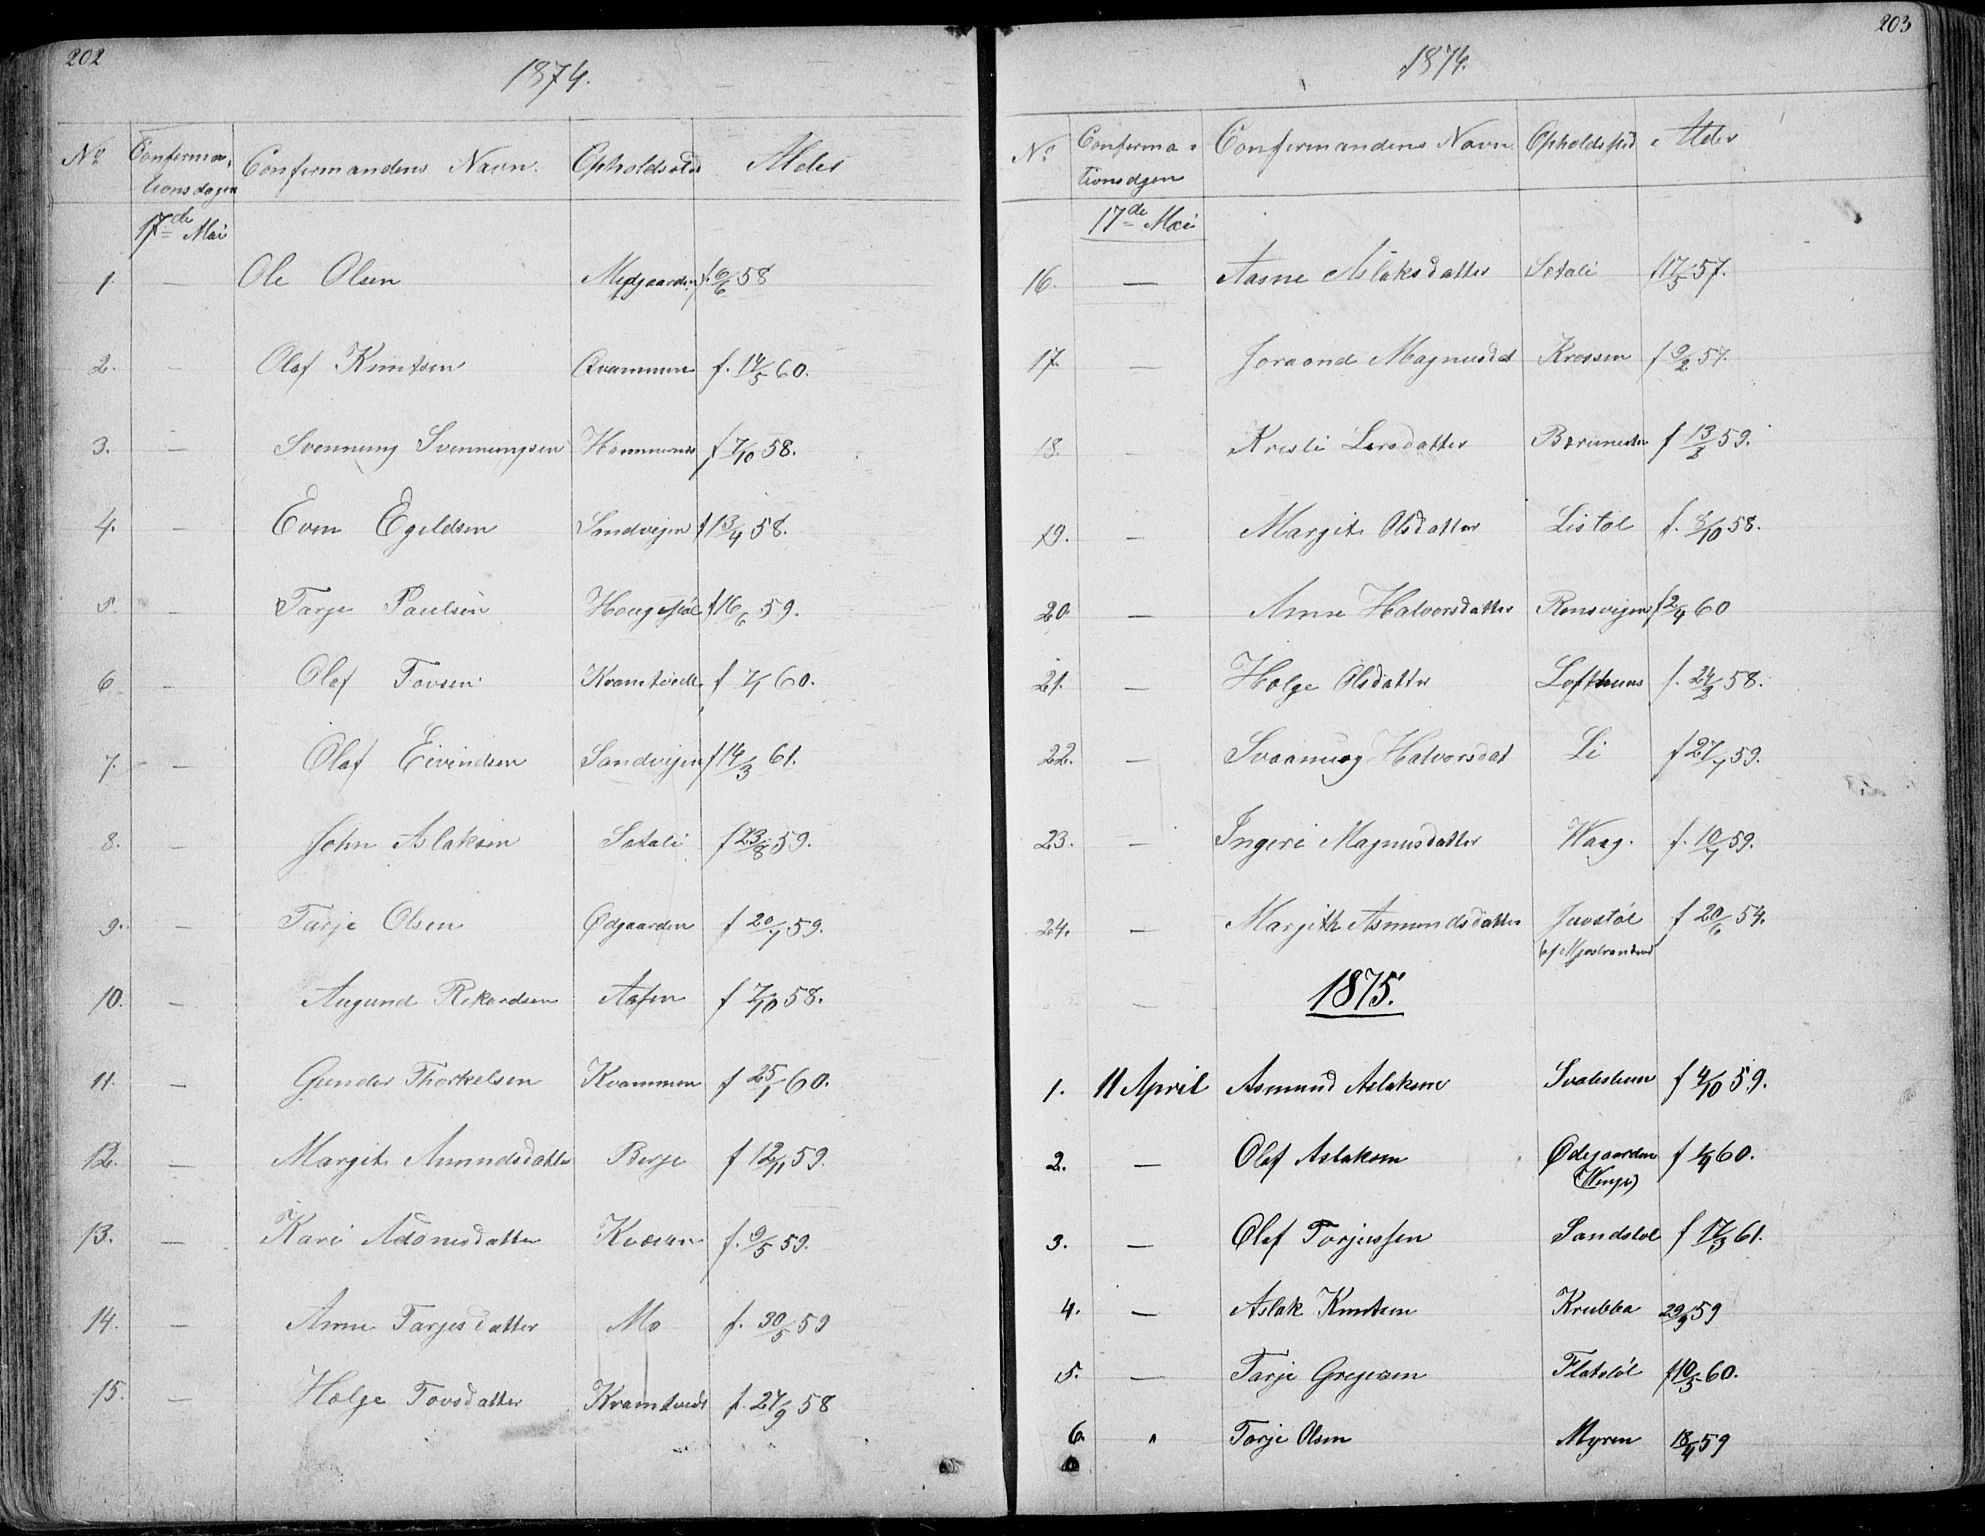 202
1874.
No Confirma- Confirmandens Navn. Opholdssted Alder
tionsdagen
17de Mai
1. — Ole Olsen Midgaarden f. 6/6 58
2. — Olaf Knutsen Qvammen f. 14/5 60.
3. — Svennung Svennungsen Hammernes f 7/10 58.
4. — Even Egeldsen Sandvigen f 13/4 58.
5. — Tarje Paulsen Haugestøl f 16/6 59.
6 — Olaf Tovsen Kramtvedt f 7/1 60.
7. — Olaf Eivindsen Sandvigen f 14/3 61.
8. — John Aslaksen Sætali f 23/8 59.
9. — Tarje Olsen Ødgaarden f 20/1 59.
10. — Augund Rikardsen Aasen f 7/10 58.
11. — Gunder Thorkelsen Kvammen f 25/1 60.
12. — Margit Amundsdatter Berge f 12/11 59.
13. — Kari Adonisdatter Kvæsen f. 9/5 59.
14. — Anne Tarjesdatter Mo f. 30/5 59
15. — Hælge Tovsdatter Kramtvedt f. 27/9 58
203
1874.
No Confirma- Confirmandens Navn Opholdssted Alder
tionsdgen
17de Mai
16. — Aasne Aslaksdatter Sætali f 17/5 57.
17. — Joraand Magnusdat Krossen f 9/2 57.
18. Kristi Larsdatter f 13/2 59.
19. — Margit Olsdatter Listøl f. 8/10 58.
20 — Anne Halvorsdatter Ronsvigen f 2/4 60
21. — Hølge Olsdatter Lofthuus f. 24/2 58.
22. — Svaanaug Halvorsdat Li f 27/1 59.
23. — Ingeri Magnusdatter Waag. f. 10/1 59.
24. — Margith Asmundsdatter Juvstøl f 20/6 54.
(af Mjøstrandmd
— 1875.
1. 11 April Asmund Aslaksen f 4/10 59.
2. — Olaf Aslaksen Ødegaarden f 1/4 60.
(Wenge)
3. — Olaf Torjussen Sandstøl f 17/3 61.
4. — Aslak Knutsen Krubba 29/9 59
5. — Tarje Gregersen Flatstøl f 10/5 60.
6. " Tarje Olsen Myren 18/4 59